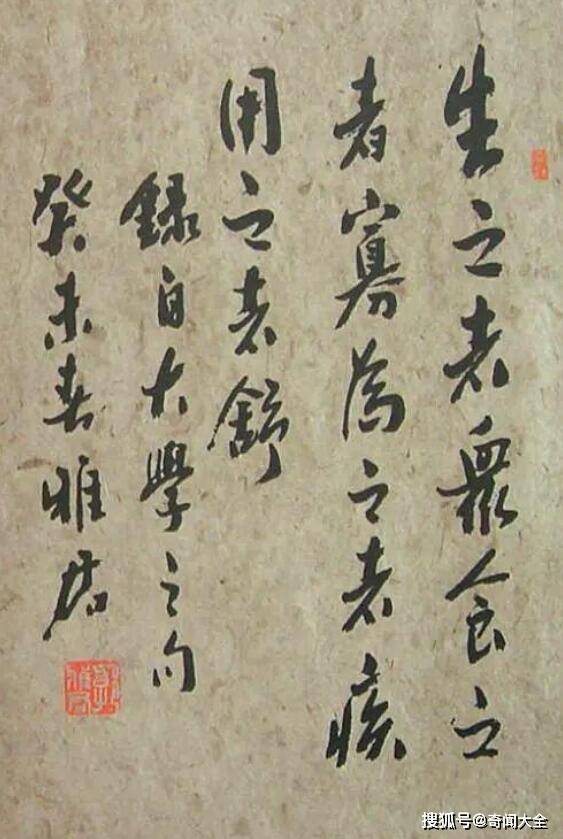 生之者衆食之
者寡為之者疾
用之者舒
錄自大學之句
癸未春雅居
搜狐号@奇闻大全